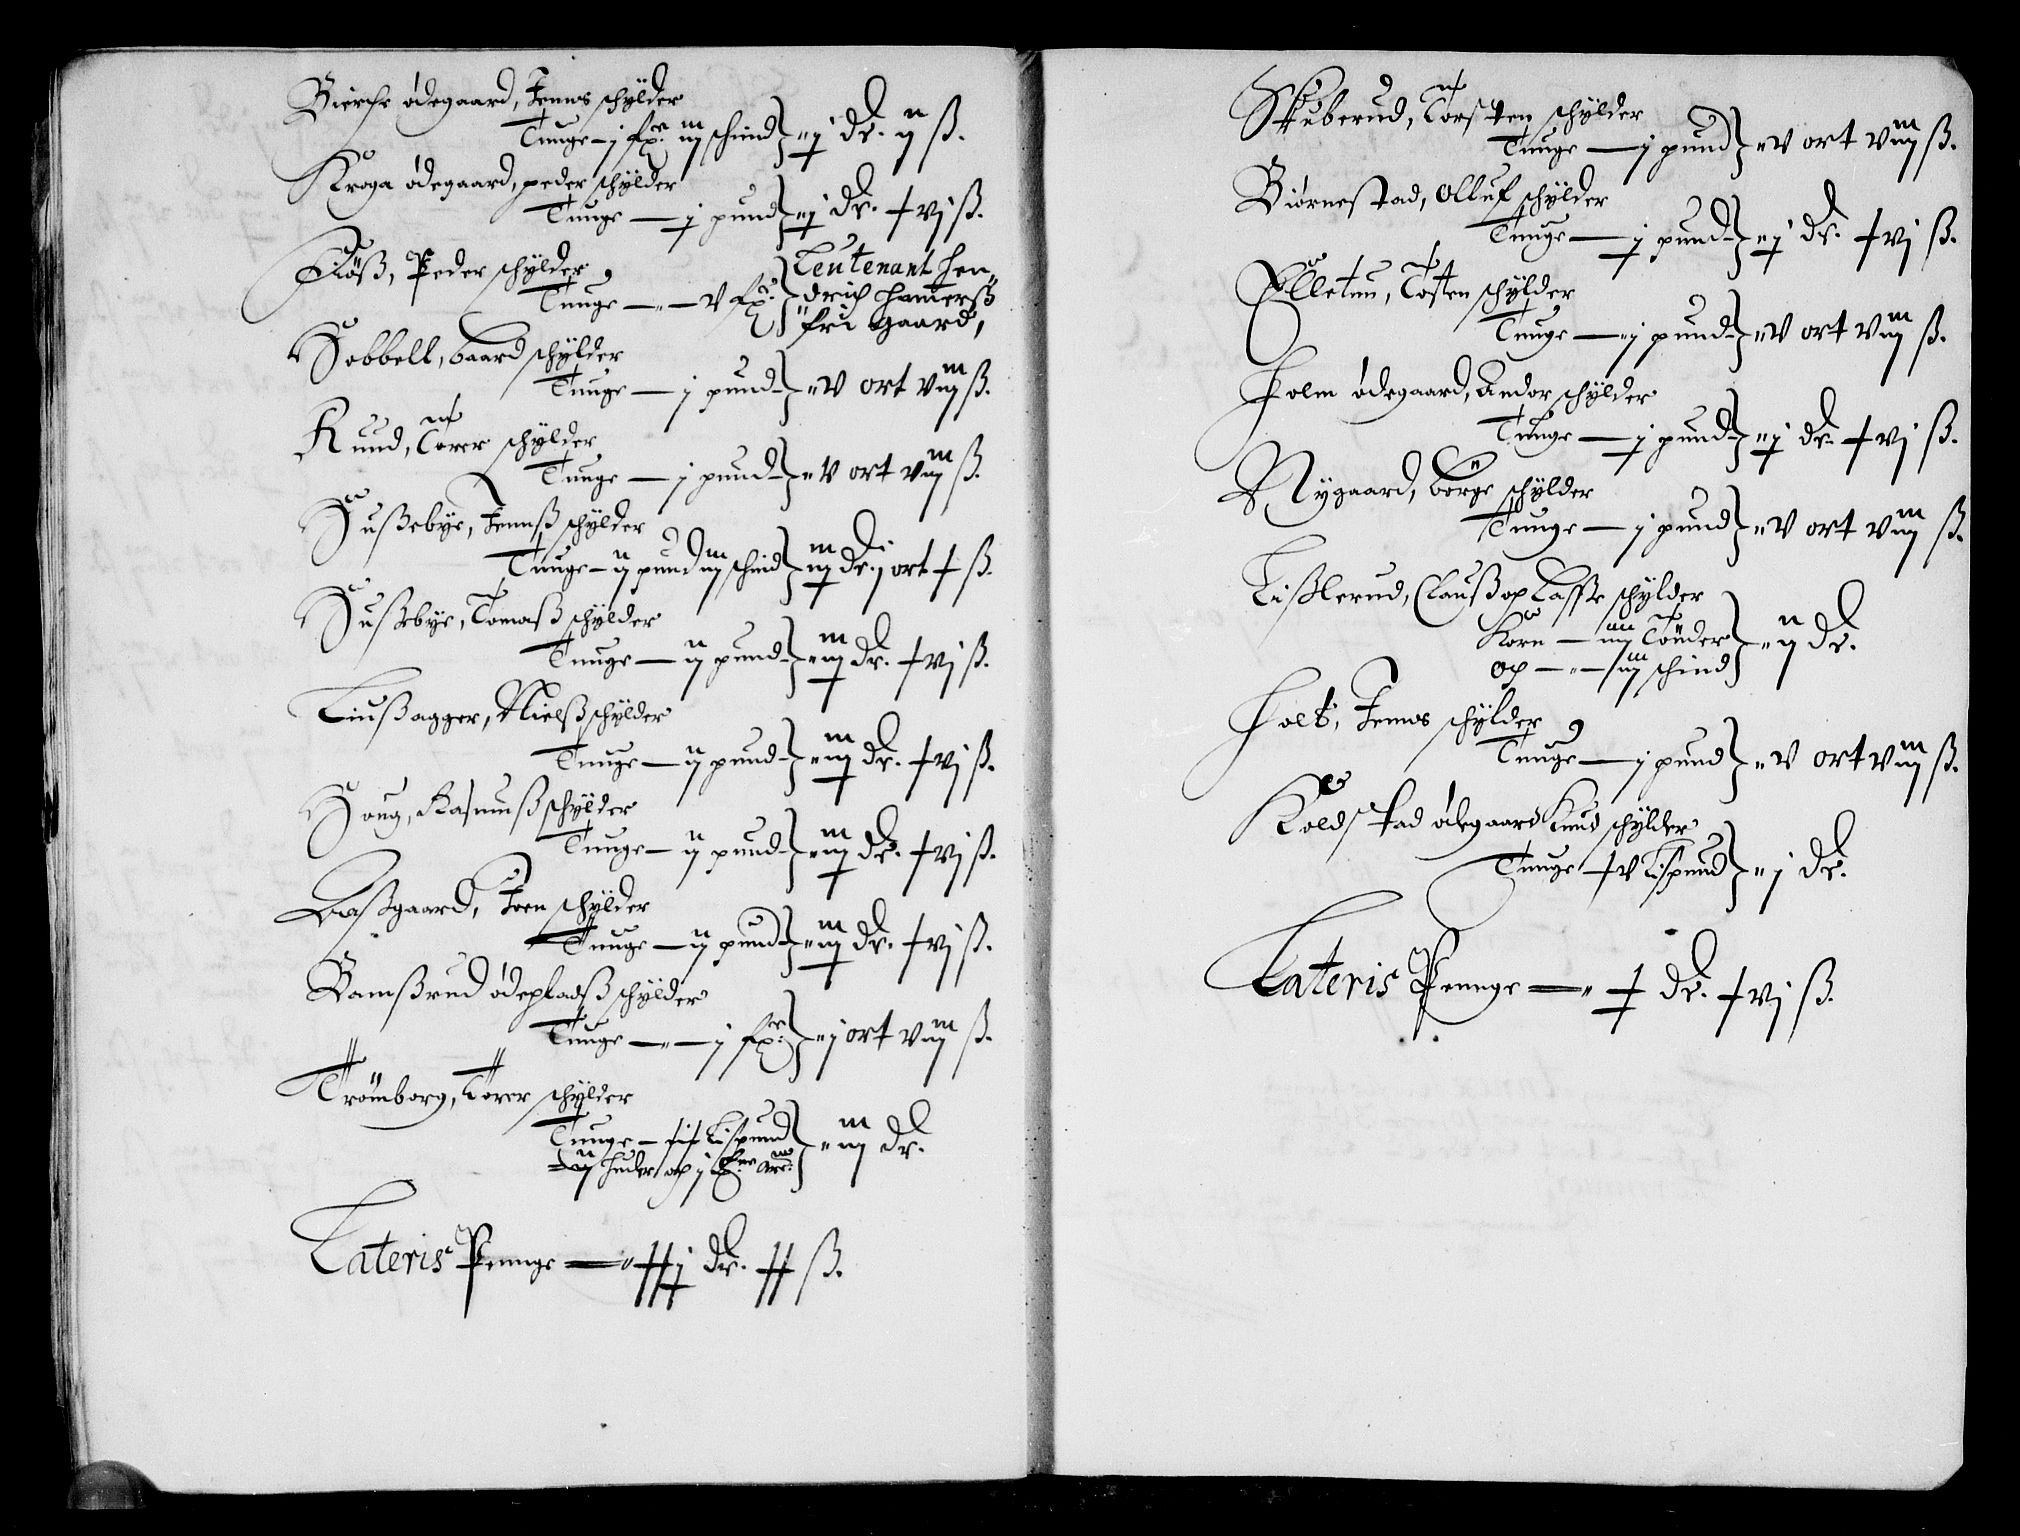 Bierche ødegaard, Jenns schylder
Tunge — j fxr: iij schind } " ɉ dr. ij ß.
Kroga ødegaard, peder schylder
Tunge — ɉ pund } " ɉ dr. xvj ß.
Fløß, Peder schylder
Tunge — " — v fxr: } Leutenant Hen-
drich Hamerß
fri gaard,
Hobbell, baard schylder
Tunge — j pund — } " v ort viij ß.
Rund, Torer schylder
Tunge — j pund — } " v ort viij ß.
Sußebye, Jennß schylder
Tunge — ij pund iij schind } iij dr. j ort x ß.
Sußebye, Tomaß schylder
Tunge — ij pund — } " iij dr. xvj ß.
Liußagger, Nielß schylder
Tunge — ij pund — } " iij dr. xvj ß.
Houg, Rasmuß schylder
Tunge — ij pund — } " iij dr. xvj ß.
Aaßgaard, Joen schylder
Tunge — ij pund — } " iij dr. xvj ß.
Ramßrud ødepladß schylder
Tunge — " — j fxr: } " j ort viij ß.
Trømborg, Torer schylder
Tunge — Lispund
ij huder op j } " iij dr.
Lateris Pennge — " xxj dr. xx ß.
Skuberud, Torsten schylder
Tunge — j pund } " v ort viij ß.
Biørnestad, Olluf schylder
Tunge — ɉ pund — } " ɉ dr. xvj ß.
Elletun, Tosten schylder
Tunge — " j pund — } " v ort viij ß.
Holm ødegaard, Andor schylder
Tunge — ɉ pund — } " ɉ dr. xvj ß.
Nygaard, børge schylder
Tunge — j pund } " v ort viij ß.
Lißlerud, Clauß op Lasse schylder
Korn — iiij Tønder
op — " — iij schind } " ij dr.
Holt, Jenns schylder
Tunge — j pund } " v ort viij ß.
Koldstad ødegaard Knud schylder
Tunge xv Lispund } " j dr.
Lateris Pennge — " x dr. xvj ß.